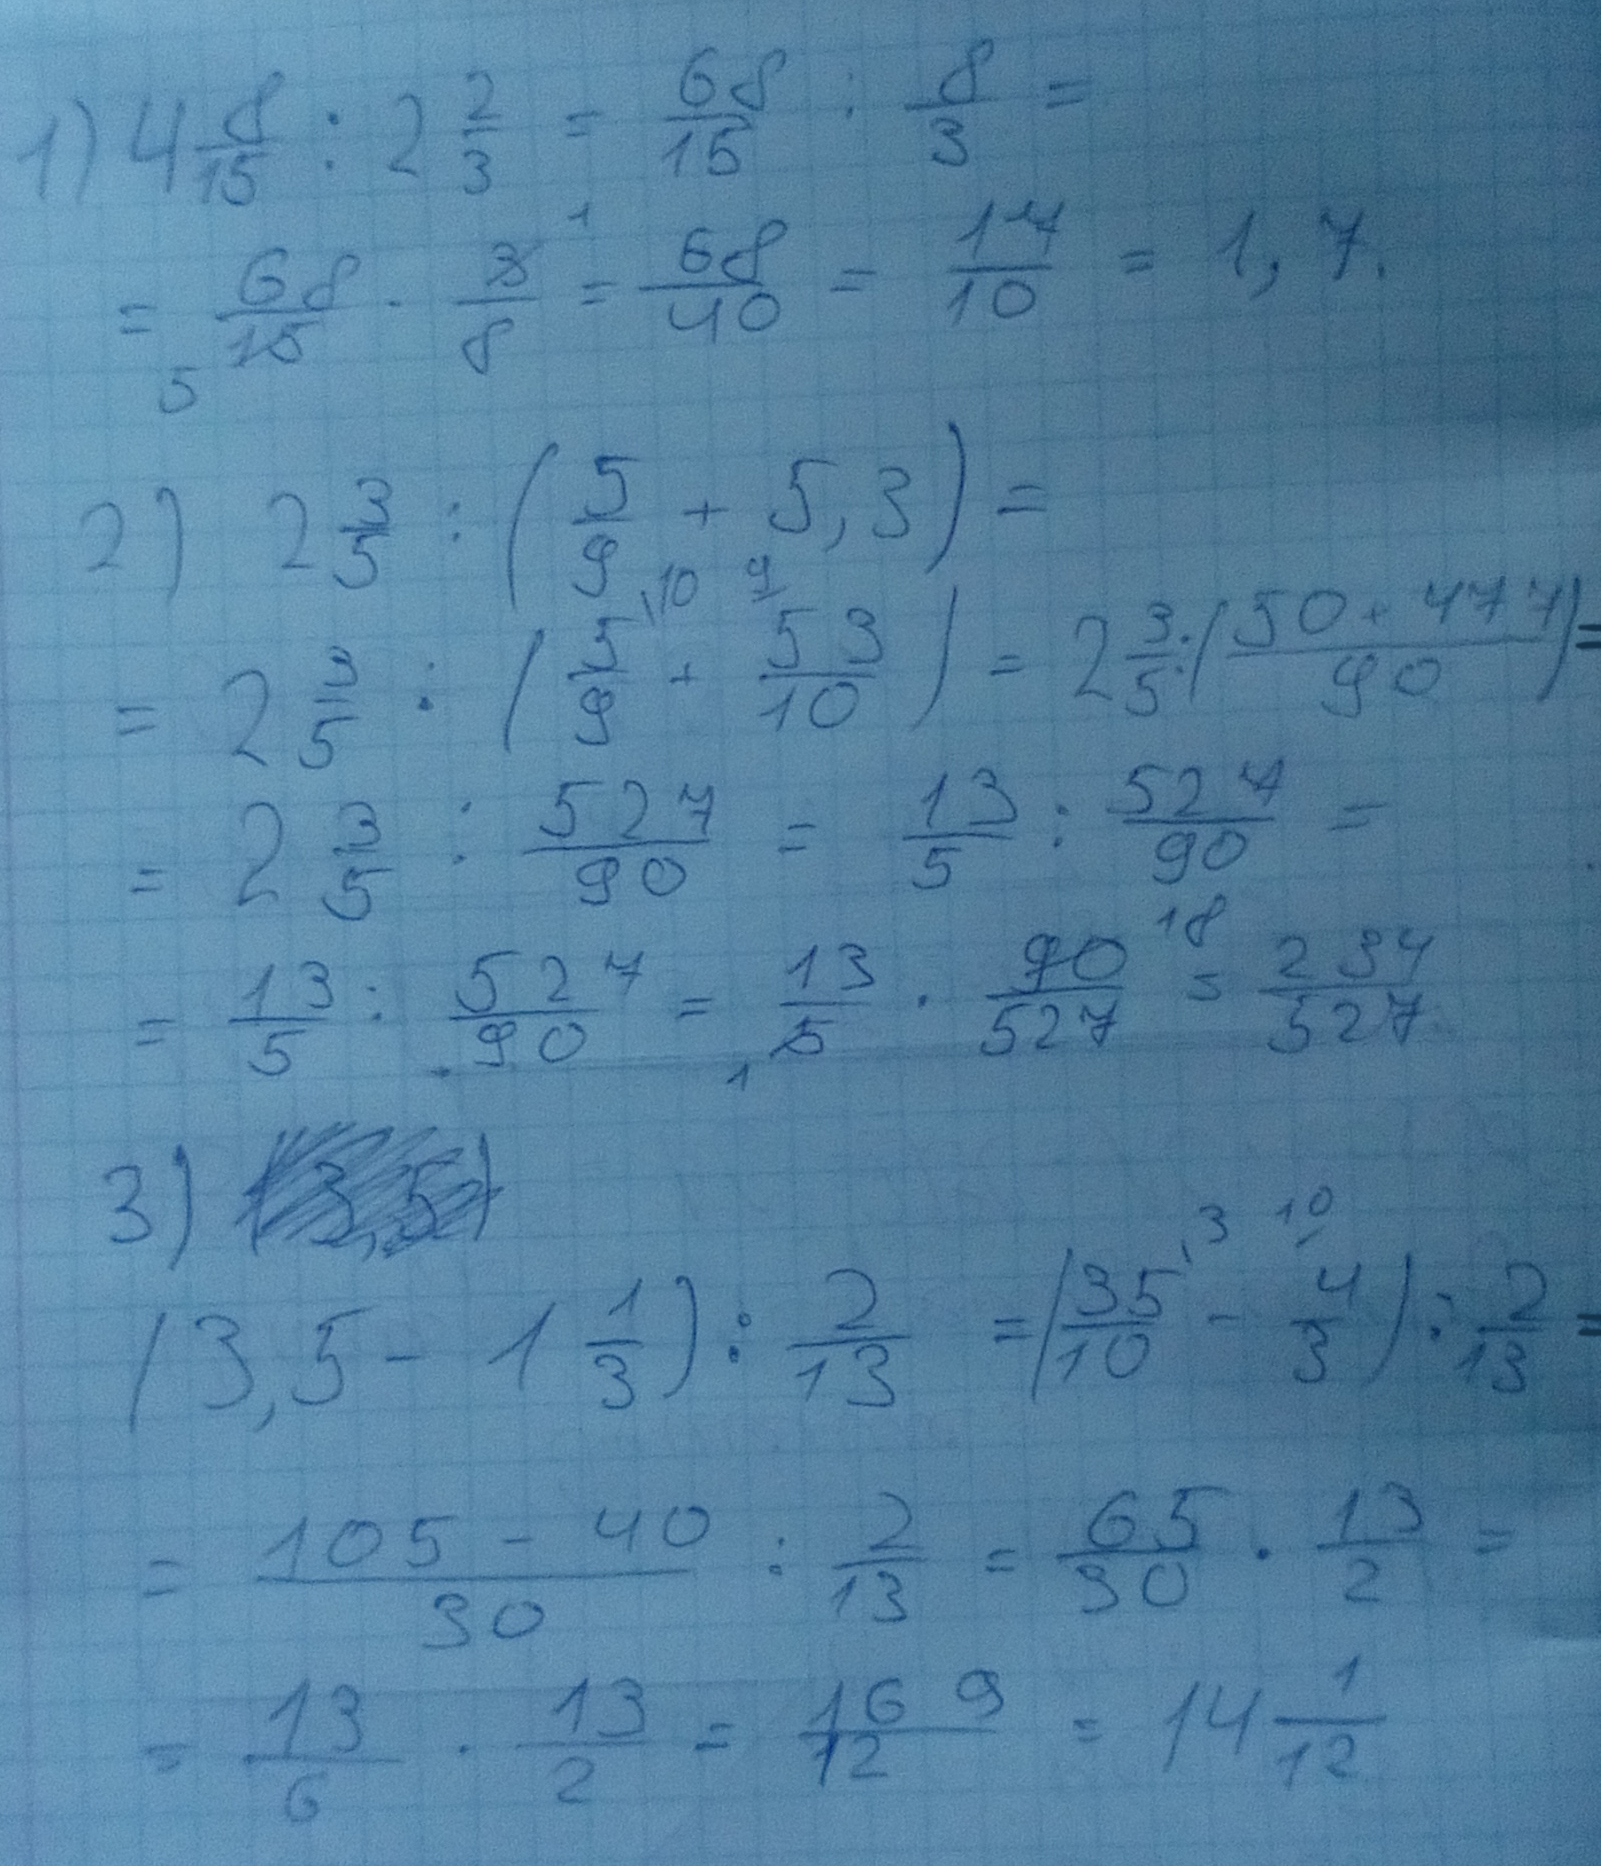 1) 4 8/15 : 2 2/3 = 68/15 : 8/3 =
= 68/15 5 · 3/8 1 = 68/40 = 17/10 = 1,7.
2) 2 3/5 : (5/9 + 5,3) =
= 2 3/5 : (5/9 \10 + 53/10 9/) = 2 3/5 : (50+477/90) =
= 2 3/5 : 527/90 = 13/5 : 527/90 =
= 13/5 : 527/90 = 13/5 1 · 90/527 18 = 234/527
3)
(3,5 - 1 1/3) : 2/13 = (35/10 \3 - 4/3 10/) : 2/13 =
= 105-40/30 : 2/13 = 65/30 · 13/2 =
= 13/6 · 13/2 = 169/12 = 14 1/12